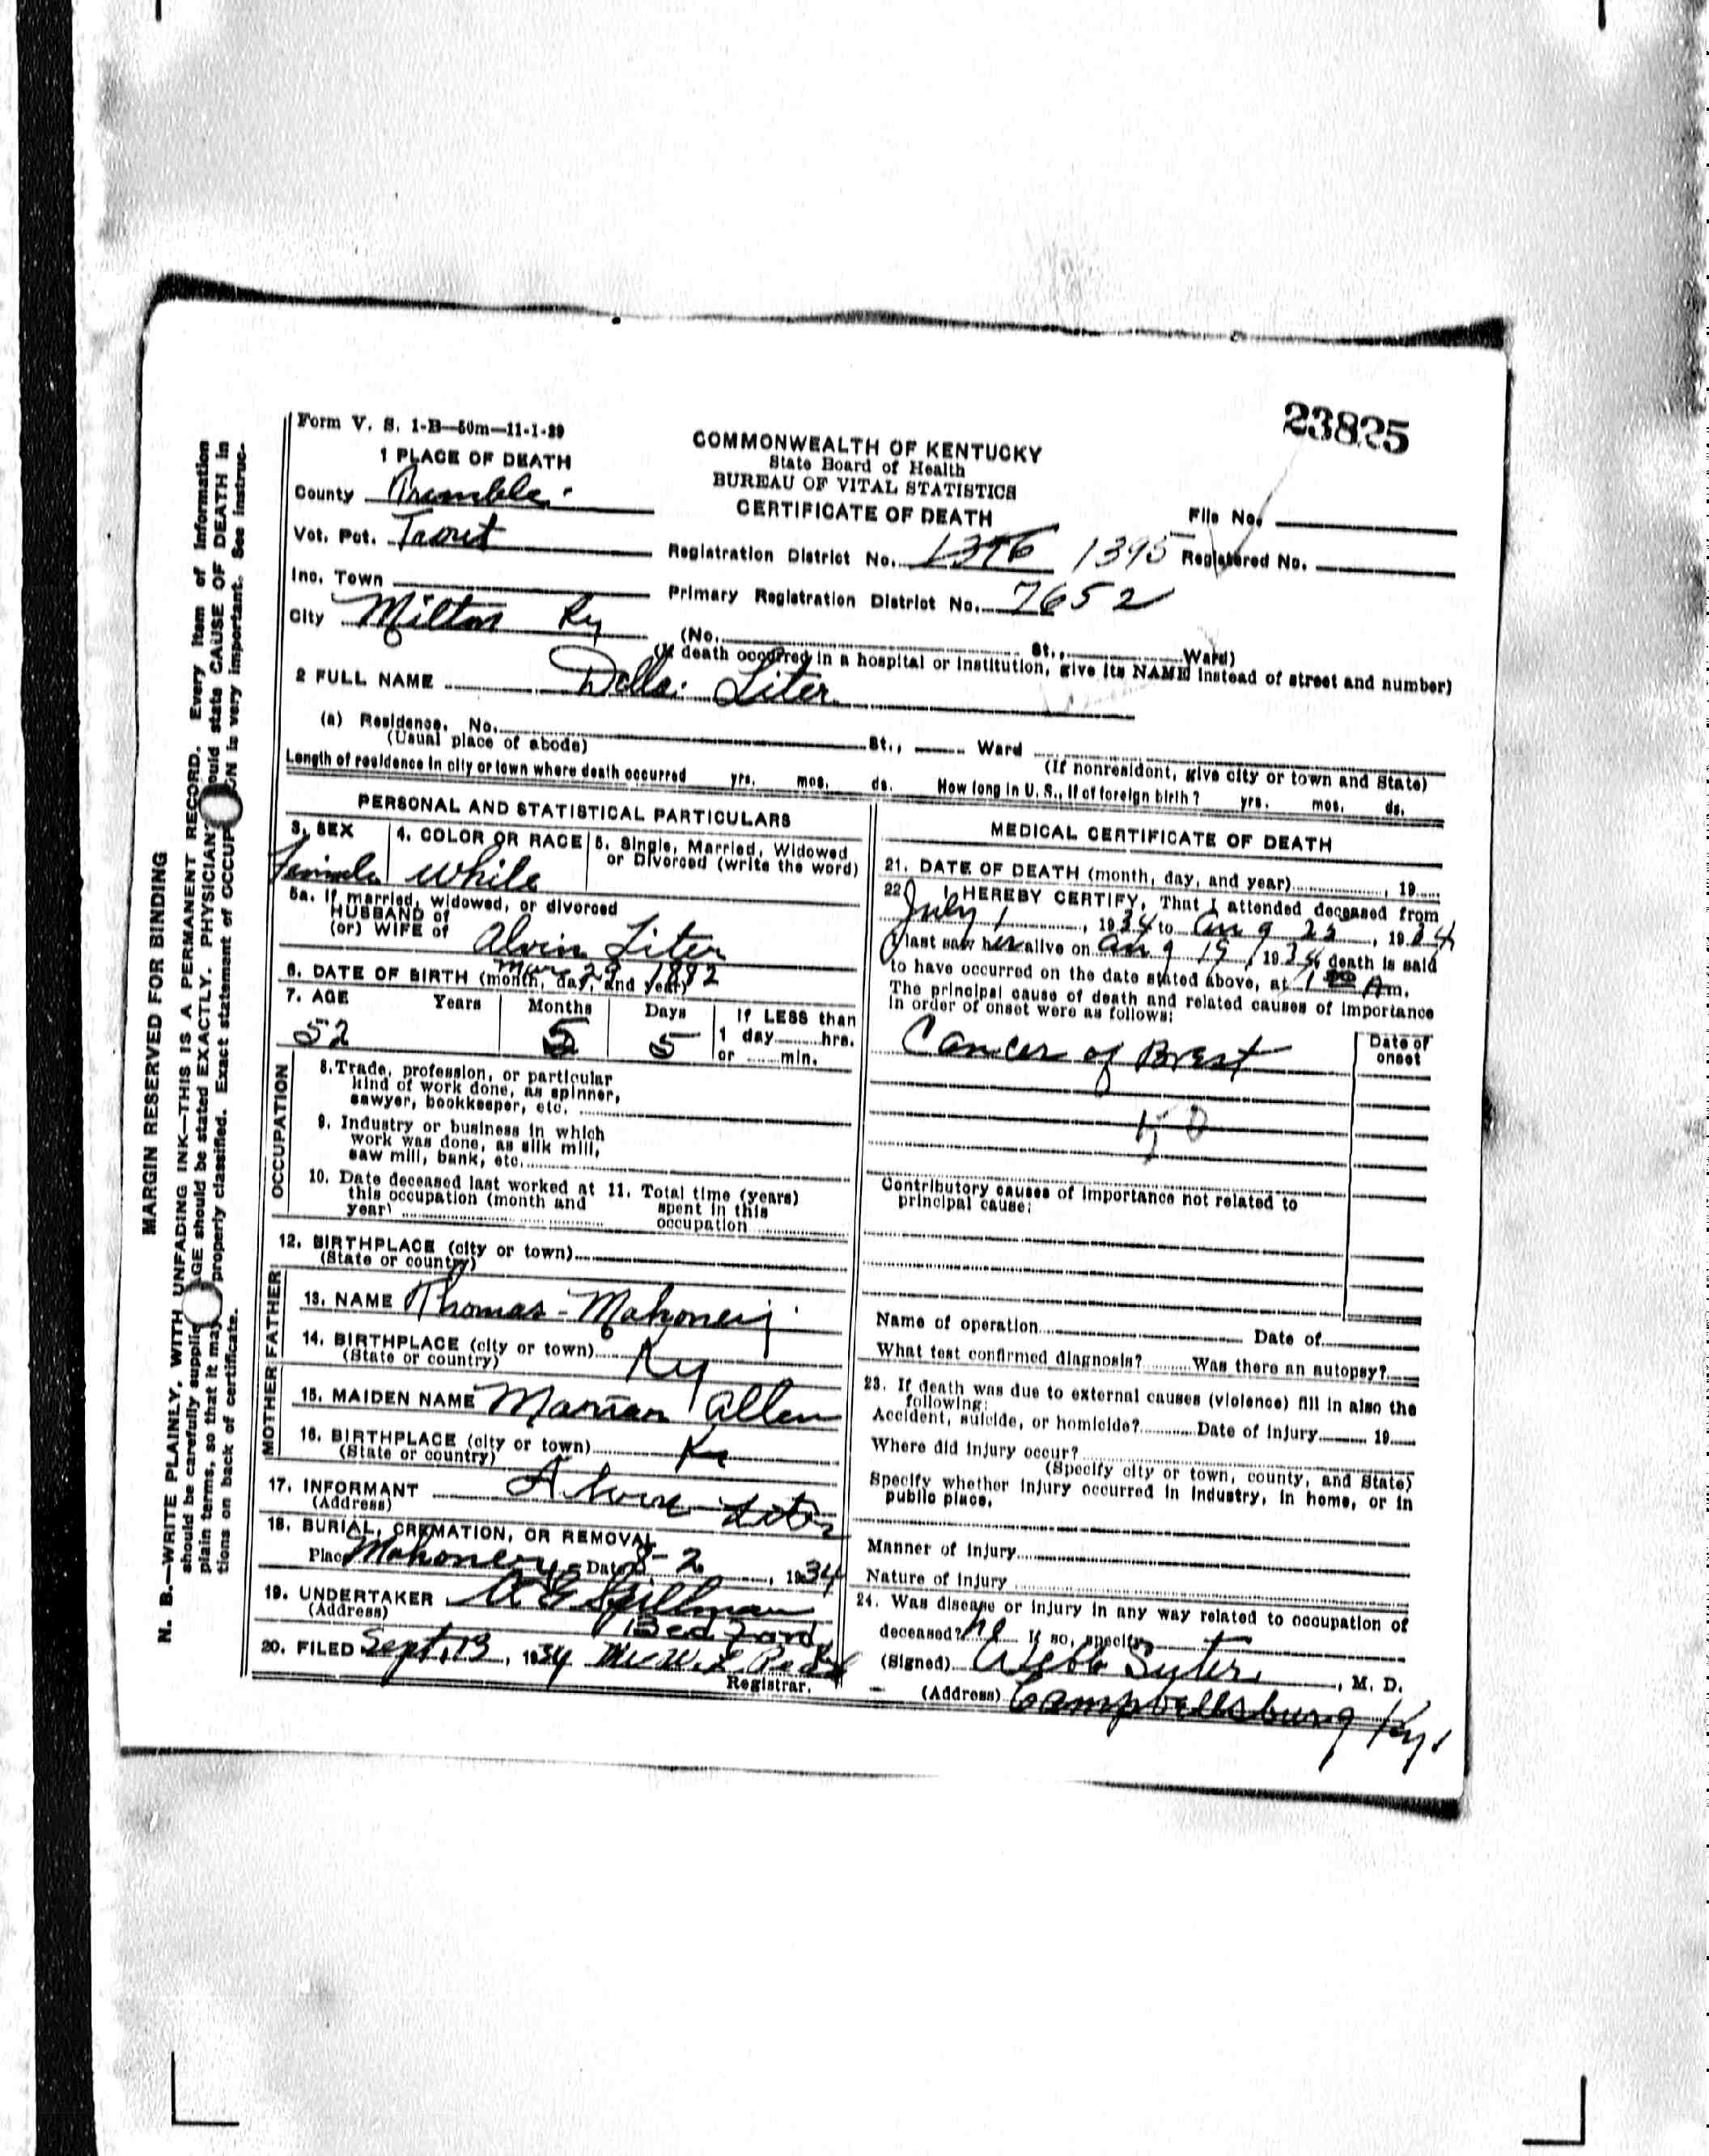 23825
Form V. S. 1-B—50m—11-1-29
COMMONWEALTH OF KENTUCKY
State Board of Health
BUREAU OF VITAL STATISTICS
CERTIFICATE OF DEATH
1 PLACE OF DEATH
County Trimble
Vot. Pct.
Inc. Town
City Milton Ky
File No.
Registration District No. 1396 1395 Registered No.
Primary Registration District No. 7652
(No. St., Ward)
(If death occurred in a hospital or institution, give its NAME instead of street and number)
2 FULL NAME Della Liter
(a) Residence. No. St., Ward
(Usual place of abode) (If nonresident, give city or town and State)
Length of residence in city or town where death occurred yrs. mos. ds. How long in U. S., if of foreign birth? yrs. mos. ds.
PERSONAL AND STATISTICAL PARTICULARS
3. SEX 4. COLOR OR RACE 5. Single, Married, Widowed
or Divorced (write the word)
Female White
5a. If married, widowed, or divorced
HUSBAND of
(or) WIFE of Alvin Liter
6. DATE OF BIRTH (month, day, and year) 29 1882
7. AGE Years Months Days If LESS than
1 day hrs.
or min.
52 5 5
OCCUPATION
8. Trade, profession, or particular
kind of work done, as spinner,
sawyer, bookkeeper, etc.
9. Industry or business in which
work was done, as silk mill,
saw mill, bank, etc.
10. Date deceased last worked at
this occupation (month and
year)
11. Total time (years)
spent in this
occupation
12. BIRTHPLACE (city or town)
(State or country)
FATHER
13. NAME Thomas - Mahoney
14. BIRTHPLACE (city or town) Ky
(State or country)
MOTHER
15. MAIDEN NAME Allen
16. BIRTHPLACE (city or town) Ky
(State or country)
17. INFORMANT Alvin Liter
(Address)
18. BURIAL, CREMATION, OR REMOVAL
Place Mahonery Date 8-2 , 1934
19. UNDERTAKER Spillman
(Address) Bedford
20. FILED Sept. 13, 1934
Registrar.
MEDICAL CERTIFICATE OF DEATH
21. DATE OF DEATH (month, day, and year) , 19
22 I HEREBY CERTIFY, That I attended deceased from
July 1 , 1934 to Aug 23 , 1934
I last saw her alive on Aug 19, 1934 death is said
to have occurred on the date stated above, at 1 Am.
The principal cause of death and related causes of importance
in order of onset were as follows:
Date of
onset
Cancer of Brest
50
Contributory causes of importance not related to
principal cause:
Name of operation Date of
What test confirmed diagnosis? Was there an autopsy?
23. If death was due to external causes (violence) fill in also the
following:
Accident, suicide, or homicide? Date of injury 19
Where did injury occur?
(Specify city or town, county, and State)
Specify whether injury occurred in industry, in home, or in
public place.
Manner of injury
Nature of injury
24. Was disease or injury in any way related to occupation of
deceased? no If so, specify
(Signed) Webb Suter, M. D.
(Address) Campbellsburg Ky.
MARGIN RESERVED FOR BINDING
N. B.—WRITE PLAINLY, WITH UNFADING INK—THIS IS A PERMANENT RECORD. Every item of information
should be carefully supplied AGE should be stated EXACTLY. PHYSICIAN should state CAUSE OF DEATH in
plain terms, so that it may properly classified. Exact statement of OCCUPATION is very important. See instruc-
tions on back of certificate.